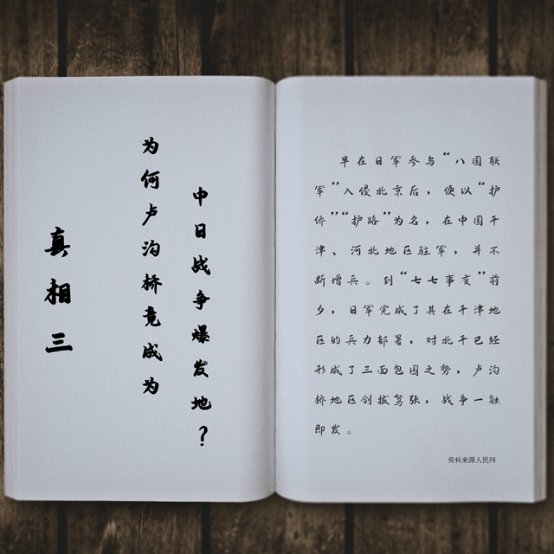 真相三
为何卢沟桥竟成为
中日战争爆发地？
早在日军参与“八国联
军”入侵北京后，便以“护
侨”“护路”为名，在中国平
津、河北地区驻军，并不
断增兵。到“七七事变”前
夕，日军完成了其在平津地
区的兵力部署，对北平已经
形成了三面包围之势，卢沟
桥地区剑拔弩张，战争一触
即发。
资料来源人民网